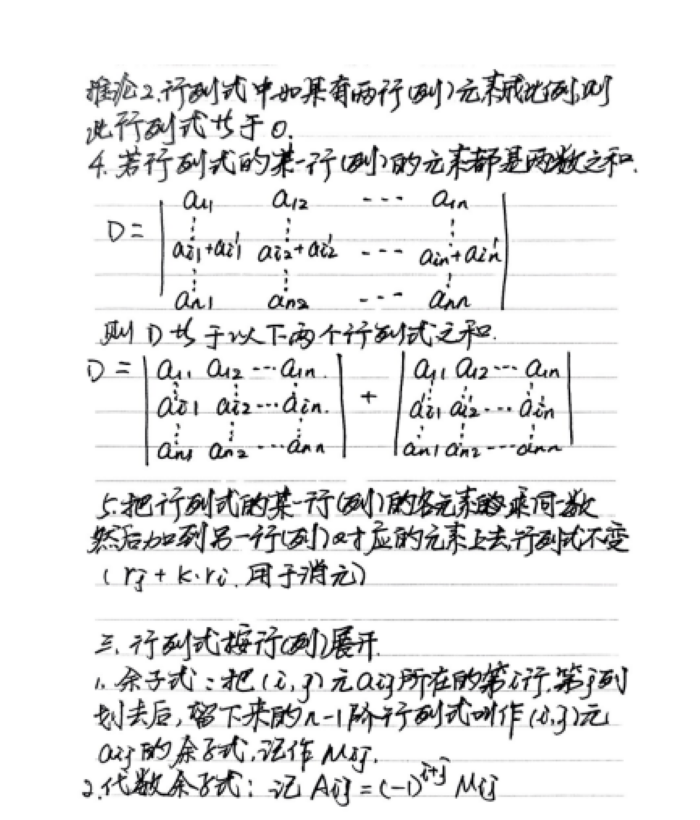 推论2.行列式中如果有两行(列)元素成比例,则
此行列式等于0.
4.若行列式的某一行(列)的元素都是两数之和.
a11 a12 --- a1n
D= ai1+ai1' ai2+ai2' --- ain+ain'
an1 an2 --- ann
则D等于以下两个行列式之和.
D= a11 a12 --- a1n. + a11 a12 --- a1n
ai1 ai2 --- ain. ai1' ai2' --- ain'
an1 an2 --- ann an1 an2 --- ann
5.把行列式的某一行(列)的各元素乘同一数
然后加到另一行(列)对应的元素上去,行列式不变
(rj+k·ri.用于消元)
三.行列式按行(列)展开.
1.余子式:把(i,j)元aij所在的第i行,第j列
划去后,留下来的n-1阶行列式叫作(i,j)元
aij的余子式.记作Mij.
2.代数余子式:记Aij=(-1)^{i+j}Mij